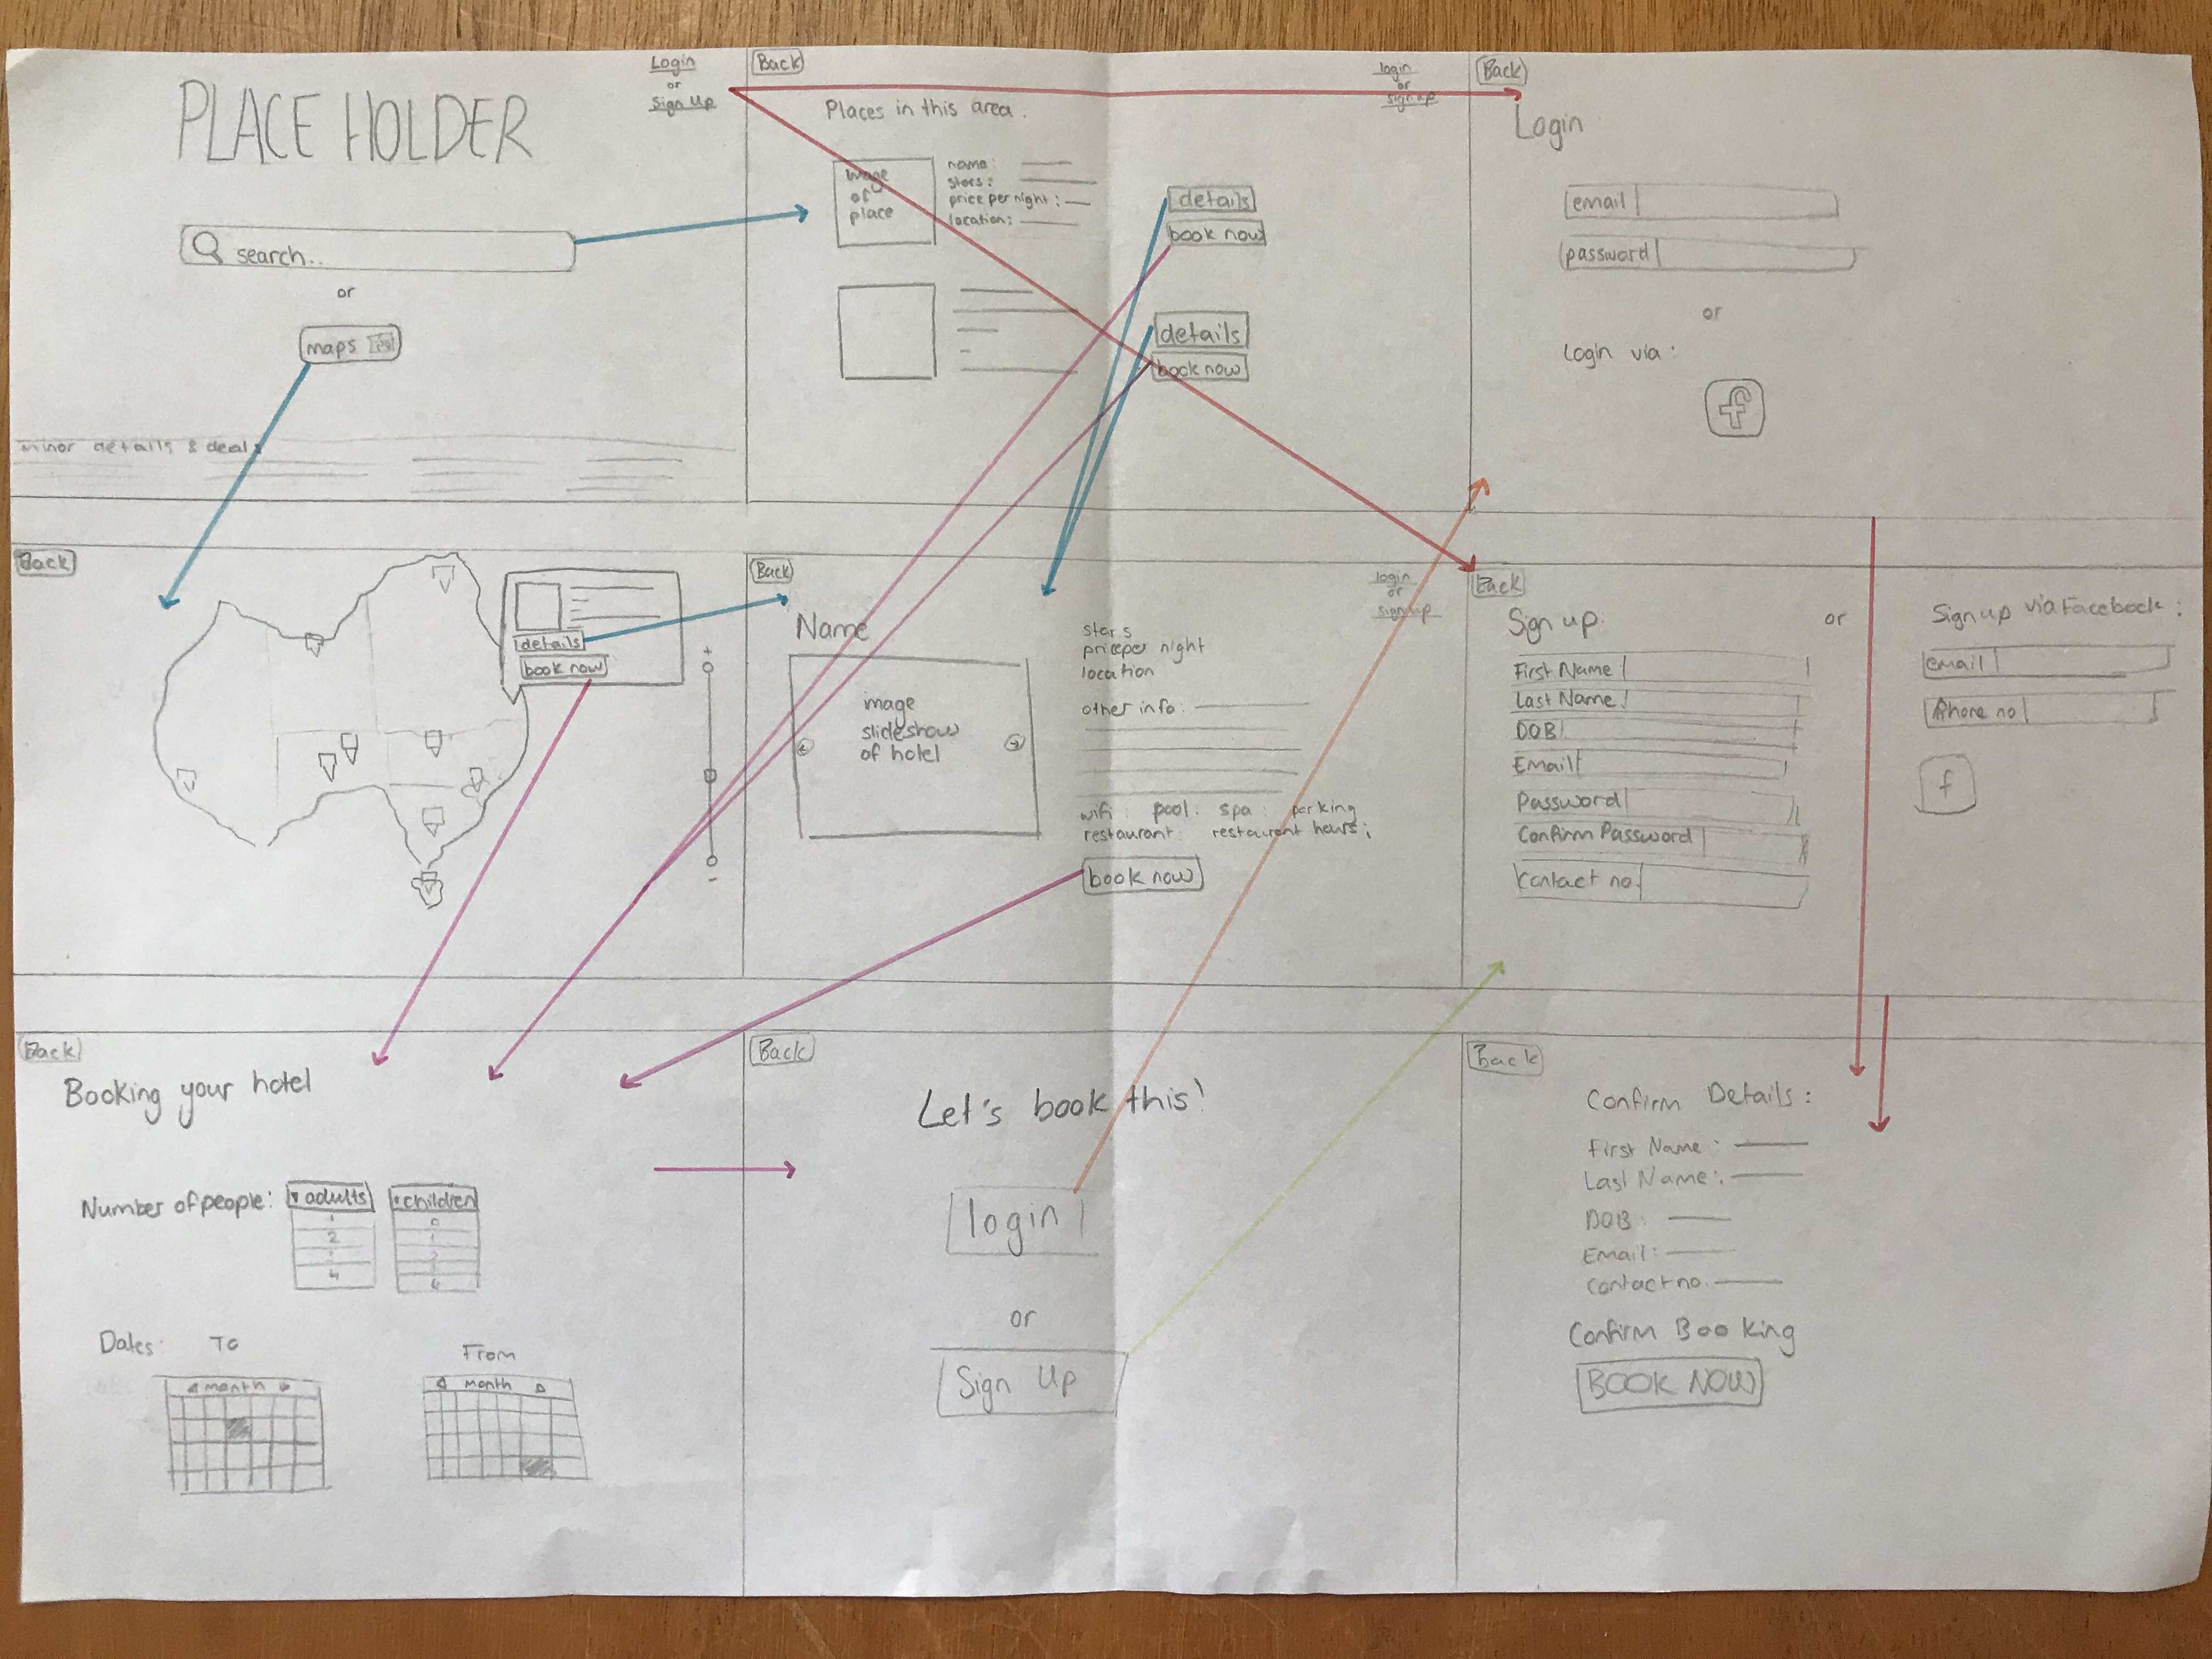 PLACE HOLDER
Login
or
Sign Up
search..
or
maps
minor details & deals
Back
login
or
sign up
Places in this area.
image
of
place
name:
stars:
price per night:
location:
details
book now
details
book now
Back
Login
email
password
or
Login via:
f
Back
details
book now
+
-
Back
login
or
sign up
Name
image
slideshow
of hotel
stars
price per night
location
other info:
wifi: pool: spa: parking
restaurant: restaurant hours:
book now
Back
Sign up:
First Name
Last Name
DOB
Email
Password
Confirm Password
Contact no.
or
Sign up via Facebook:
email
Phone no
f
Back
Booking your hotel
Number of people:
adults
1
2
3
4
children
0
1
2
3
4
Dates: To
month
From
month
Back
Let's book this!
login
or
Sign Up
Back
Confirm Details:
First Name:
Last Name:
DOB:
Email:
Contact no.
Confirm Booking
BOOK NOW